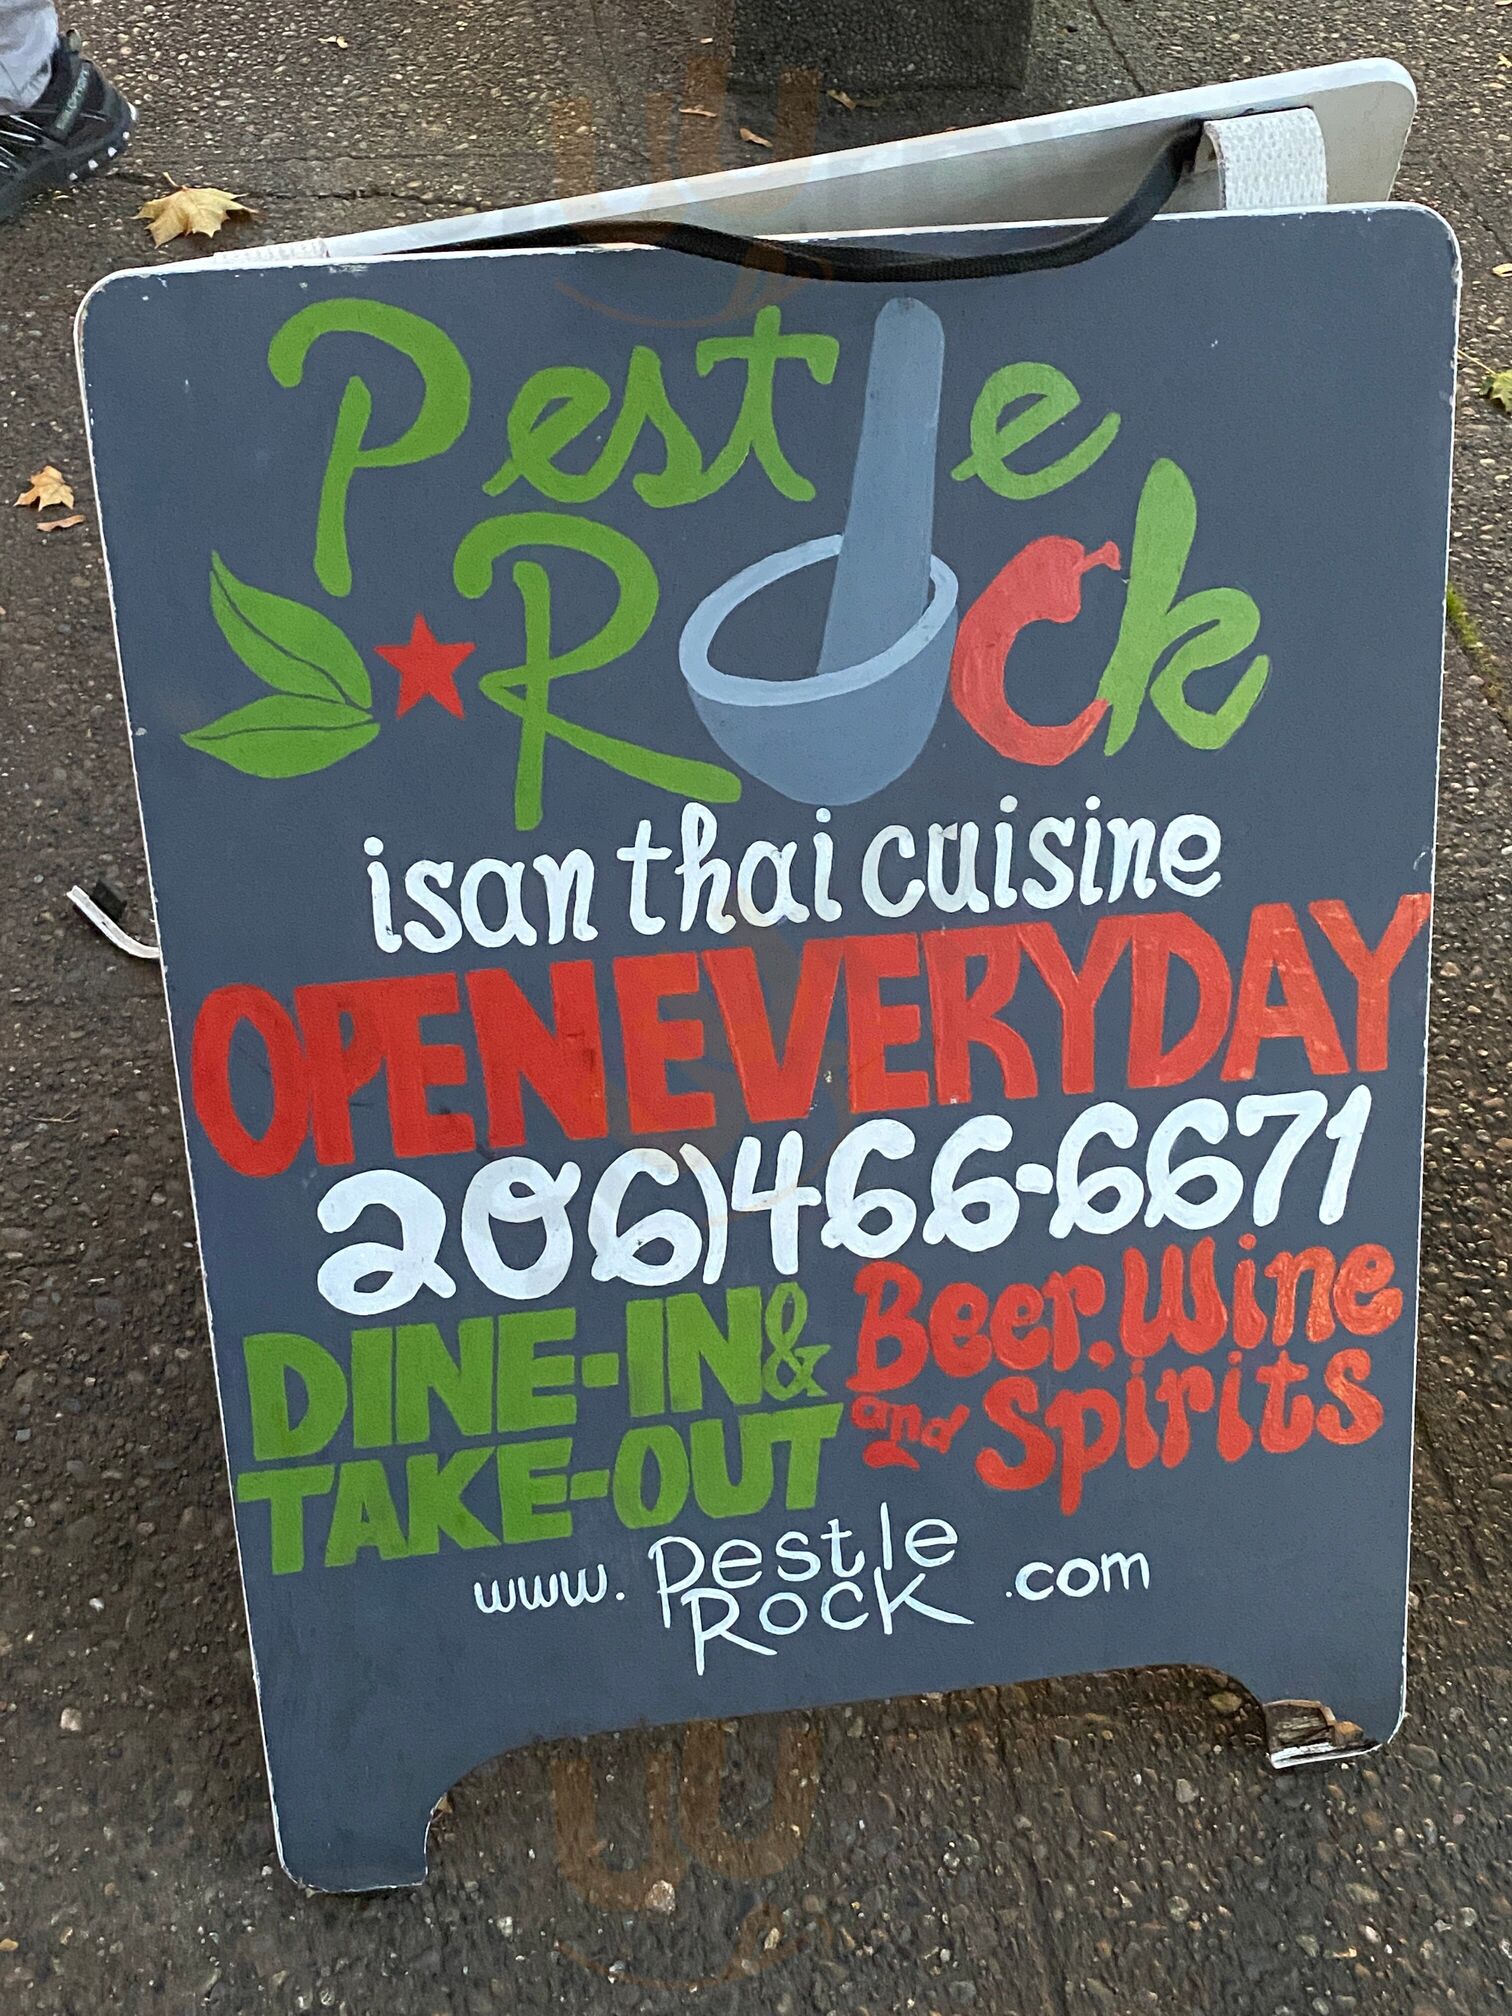 Pestle
Rock
isan thai cuisine
OPEN EVERYDAY
206)466-6671
DINE-IN &
TAKE-OUT
Beer, Wine
and Spirits
www. Pestle Rock .com